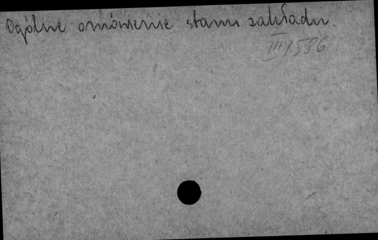 Ogólne omówienie stanu zakładu.
III 1586